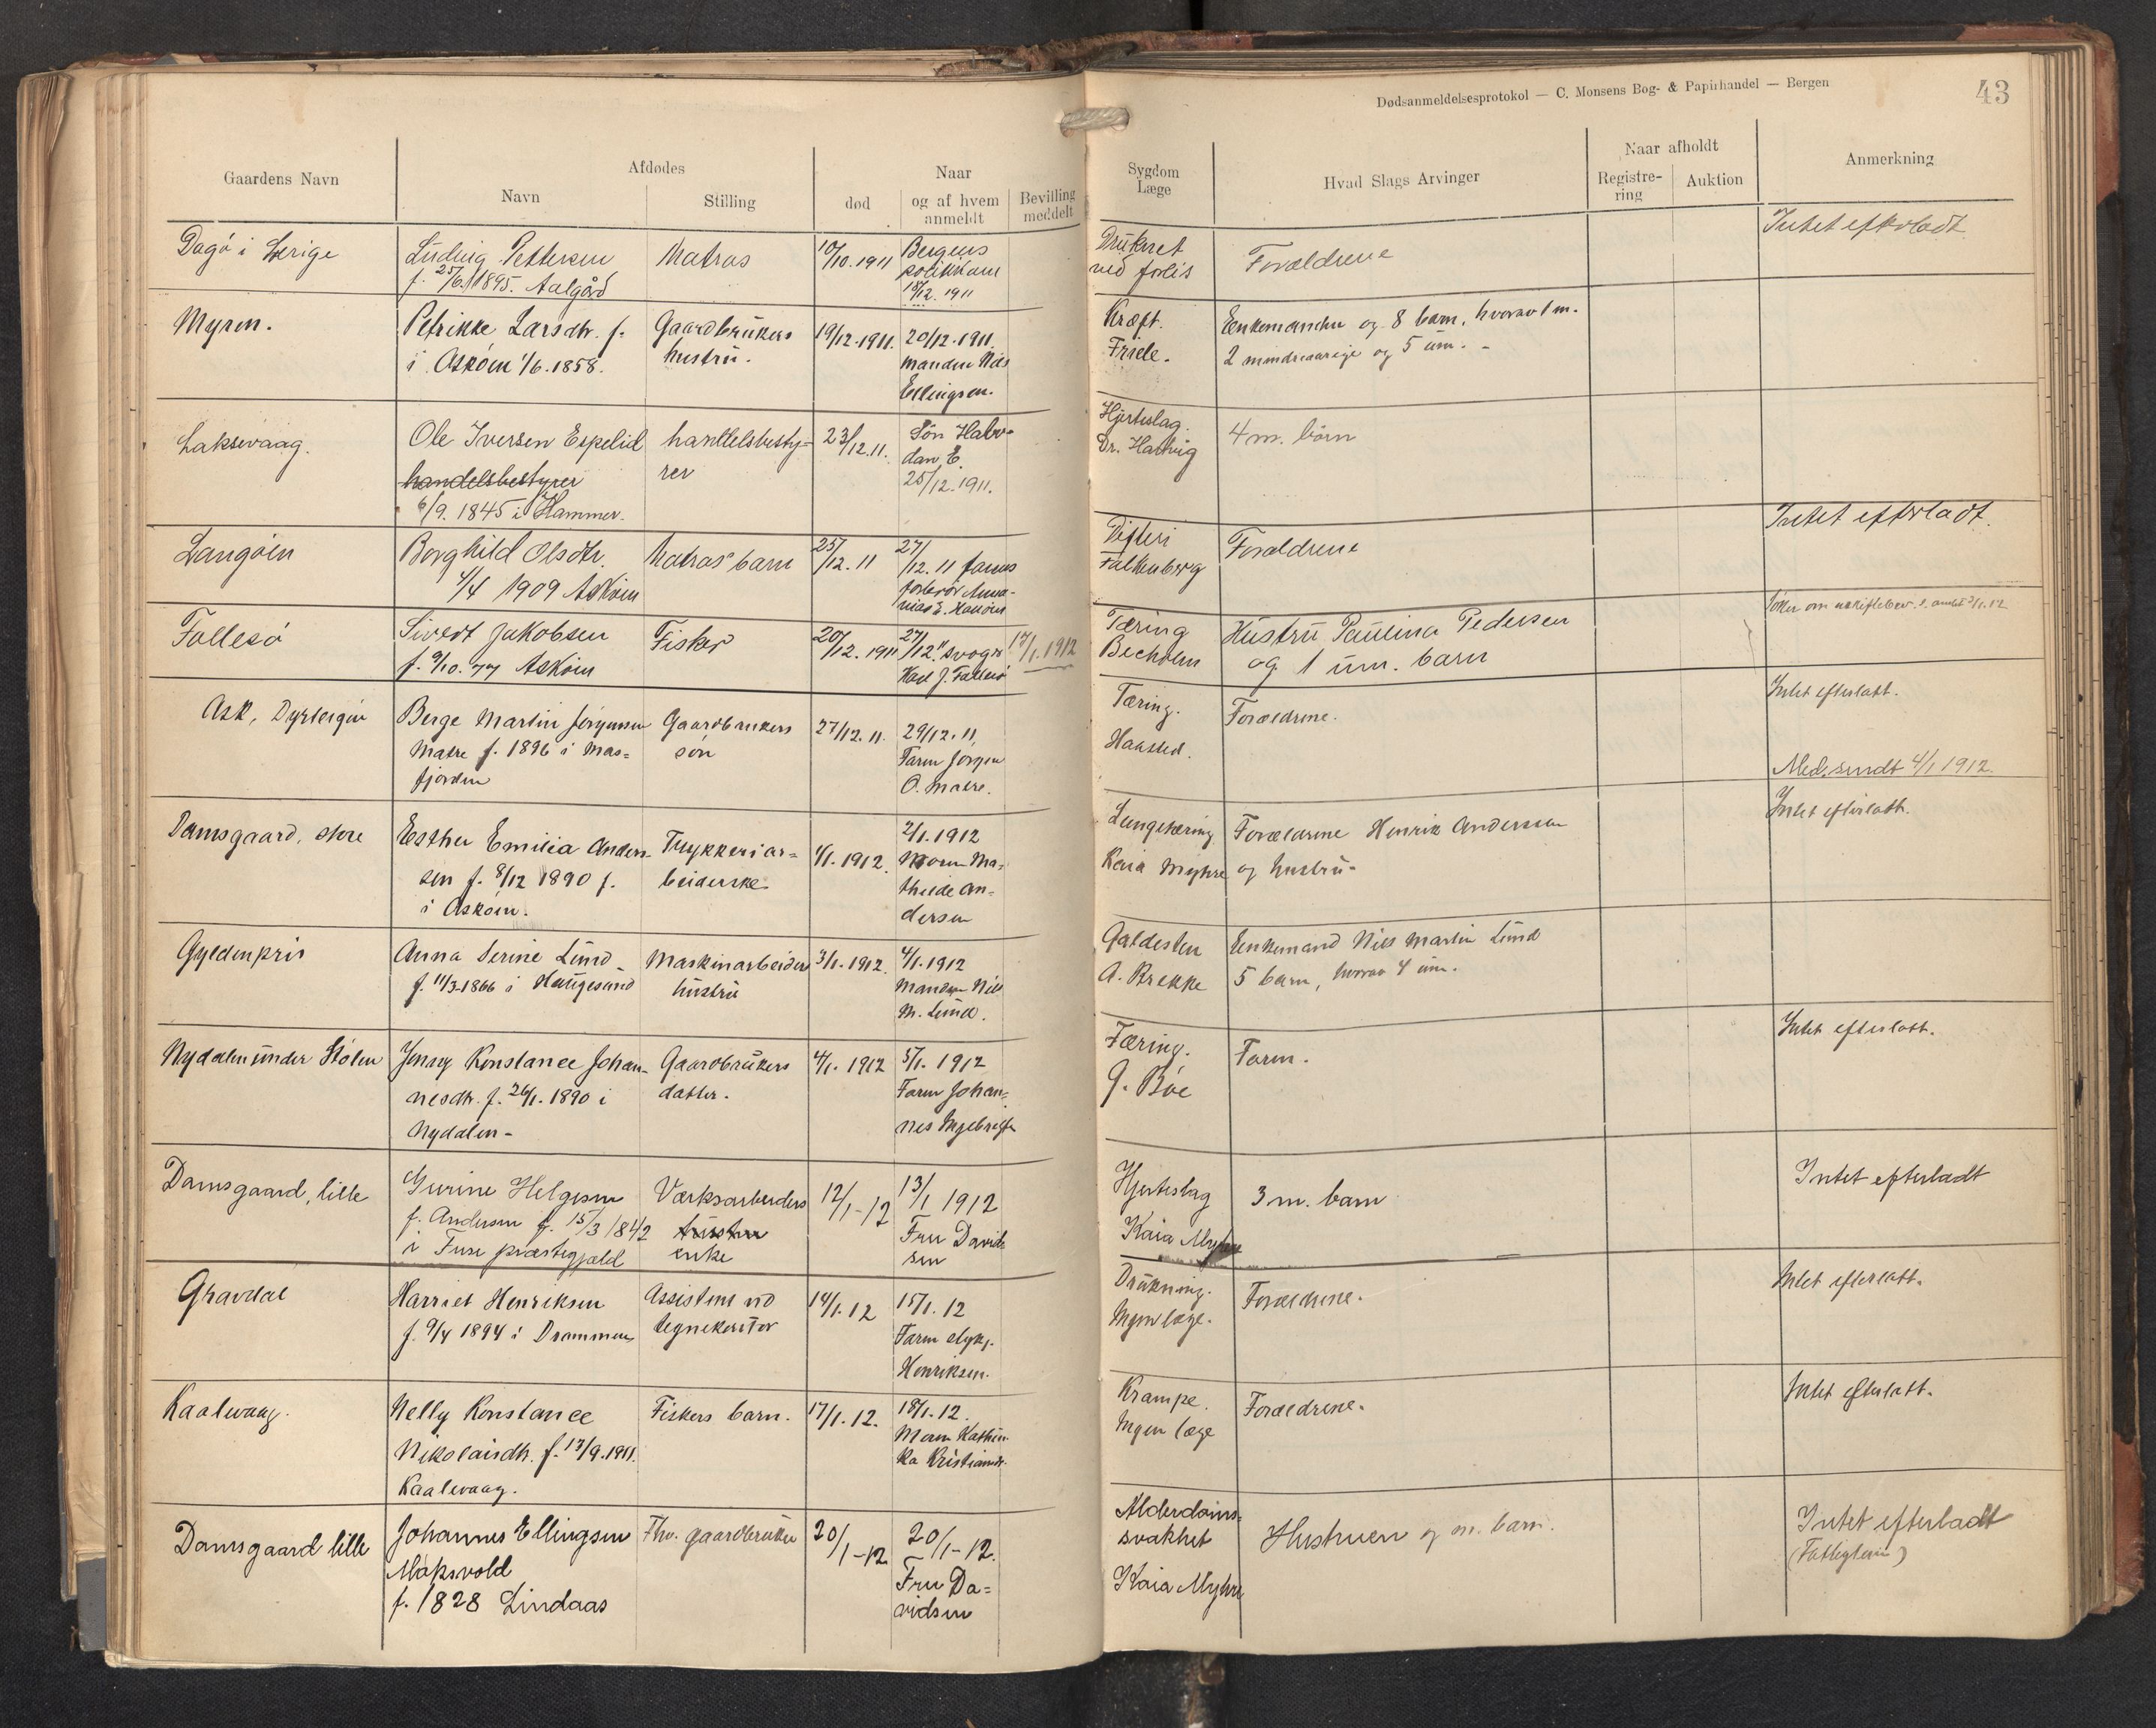 Dødsanmeldelsesprotokol — C. Monsens Bog- & Papirhandel — Bergen
43
Gaardens Navn
Afdødes
Navn
Stilling
død
Naar
og af hvem
anmeldt
Bevilling
meddelt
Sygdom
Læge
Hvad Slags Arvinger
Naar afholdt
Registre-
ring
Auktion
Anmerkning
Dagö i Sverige
Ludvig Pettersen
f. 25/6 1895. Aalgård
Matros
10/10.1911
Bergens
politikam
18/12. 1911
Druknet
ved forlis
Forældrene
Intet efterladt
Myren.
Petrikke Larsdtr. f.
i Askøen 1/6.1858.
Gaardbrukers
hustru.
19/12.1911.
20/12.1911.
manden Nils
Ellingsen.
Kræft.
Friele.
Enkemanden og 8 barn, hvorav 1 m.
2 mindreaarige og 5 um. -
Laksevaag.
Ole Iversen Espelid
handelsbestyrer
6/9. 1845 i Hammer.
handelsbesty-
rer
23/12.11.
Søn Halv-
dan E.
25/12.1911.
Hjerteslag.
Dr. Hartvig
4 m. börn
Langøen
Borghild Olsdtr.
4/4 1909 Askøen
Matros barn
25/12.11
27/12.11 farens
Difteri
Falkenberg
Forældrene
Intet efterladt.
Follesö
Sivert Jakobsen
f. 9/10.77 Askøen
Fisker
20/12.1911
27/12.11 svoger
Karl J. Follesö
17/1.1912
Tæring
Becholm
Hustru Paulina Pedersen
og 1 um. barn
Ask, Dyrteigen
Berge Martin Jørgensen
Matre f. 1896 i Mas-
fjorden
Gaardbrukers
søn
27/12.11.
29/12.11,
Faren Jørgen
O. Matre.
Tæring.
Haksted.
Forældrene.
Intet efterlatt.
Med. sendt 4/1 1912.
Damsgaard, store
Esther Emilia Ander-
sen f. 8/12 1890 f.
i Askøen.
Trykkeriar-
beiderske.
1/1.1912.
2/1.1912
Moren Ma-
thilde An-
dersen
Lungetæring
Kaia Myhre
Forældrene Henrik Andersen
og hustru-
Intet efterlatt.
Gyldenpris
Anna Serine Lund
f. 11/3-1866 i Haugesund
Maskinarbeiders
hustru
3/1.1912.
4/1.1912
Manden Nils
M. Lund.
Galdesten
A. Brekke
Enkemand Nils Martin Lund
5 barn, hvorav 4 um.
Nydalen under Stølen
Jenny Konstance Johan-
nesdtr. f. 26/1.1890 i
Nydalen-
Gaardbrukers
datter.
4/1.1912
5/1.1912
Faren Johan-
nes Ingebrigts
Tæring.
G. Bøe
Faren.
Intet efterlatt.
Damsgaard, lille
Gurine Helgesen
f. Andersen f. 15/3 1842
i Fuse præstegjæld
Værksarbeiders
hustru
enke
12/1-12
13/1 1912
Fru David-
sen
Hjerteslag
Kaia Myhre
3 m. barn
Intet efterladt
Gravdal
Harriet Henriksen
f. 9/4 1894 i Drammen
Assistent ved
tegnekontor
14/1.12
15/1.12
Faren
Henriksen.
Drukning.
Ingen læge.
Forældrene.
Intet efterlatt.
Kaalvaag.
Nelly Konstance
Nikolaisdtr. f. 13/9.1911.
Kaalevaag.
Fiskers barn.
17/1.12.
18/1.12.
Moren Kathin-
ka Kristiansdr.
Krampe.
Ingen læge
Forældrene.
Intet efterlatt.
Damsgaard lille
Johannes Ellingsen
Maksvold
f. 1828 Lindaas
Fhv. gaardbruker
20/1-12
20/1-12.
Fru Da-
vidsen
Alderdoms-
svakhet
Kaia Myhre
Hustruen og m. barn.
Intet efterladt
(Fattiglem)